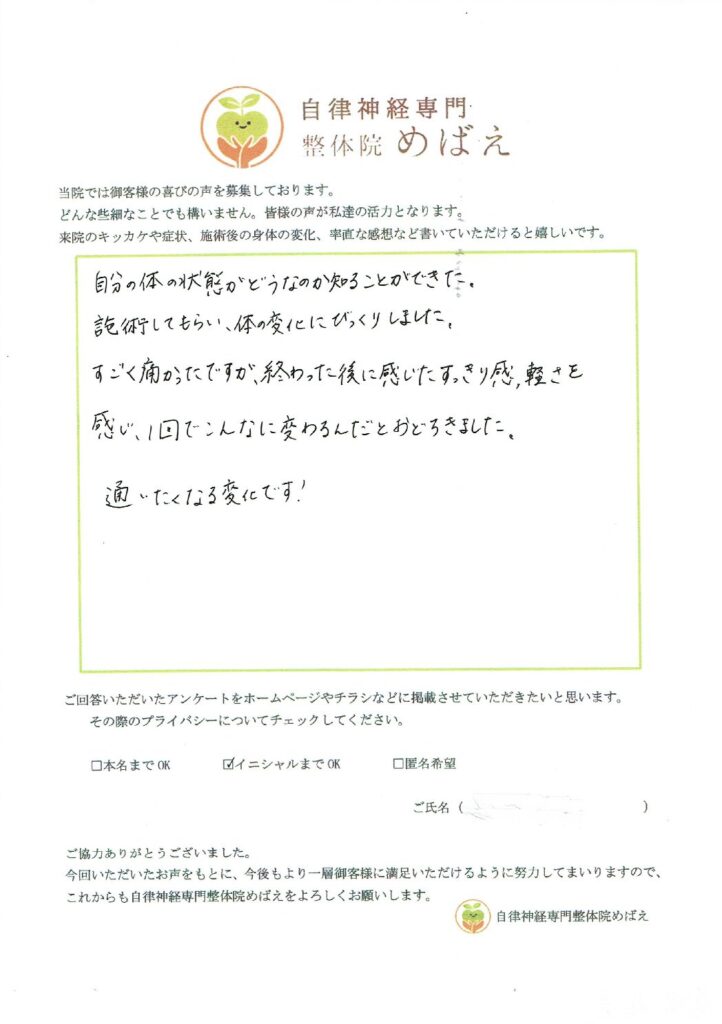 自律神経専門
整体院 めばえ
当院では御客様の喜びの声を募集しております。
どんな些細なことでも構いません。皆様の声が私達の活力となります。
来院のキッカケや症状、施術後の身体の変化、率直な感想など書いていただけると嬉しいです。
自分の体の状態がどうなのか知ることができた。
施術してもらい、体の変化にびっくりしました。
すごく痛かったですが、終わった後に感じたすっきり感,軽さを
感じ、1回でこんなに変わるんだとおどろきました。
通いたくなる変化です!
ご回答いただいたアンケートをホームページやチラシなどに掲載させていただきたいと思います。
その際のプライバシーについてチェックしてください。
□本名までOK ☑イニシャルまでOK □匿名希望
ご氏名 ( )
ご協力ありがとうございました。
今回いただいたお声をもとに、今後もより一層御客様に満足いただけるように努力してまいりますので、
これからも自律神経専門整体院めばえをよろしくお願いします。
自律神経専門整体院めばえ